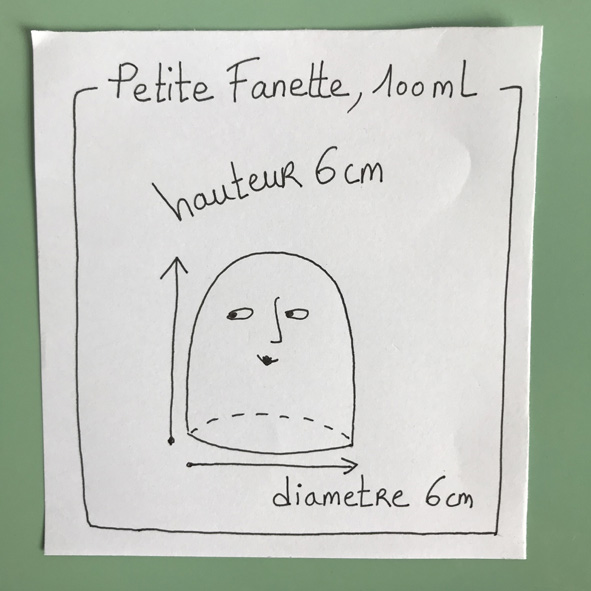 Petite Fanette, 100mL
hauteur 6cm
diametre 6cm